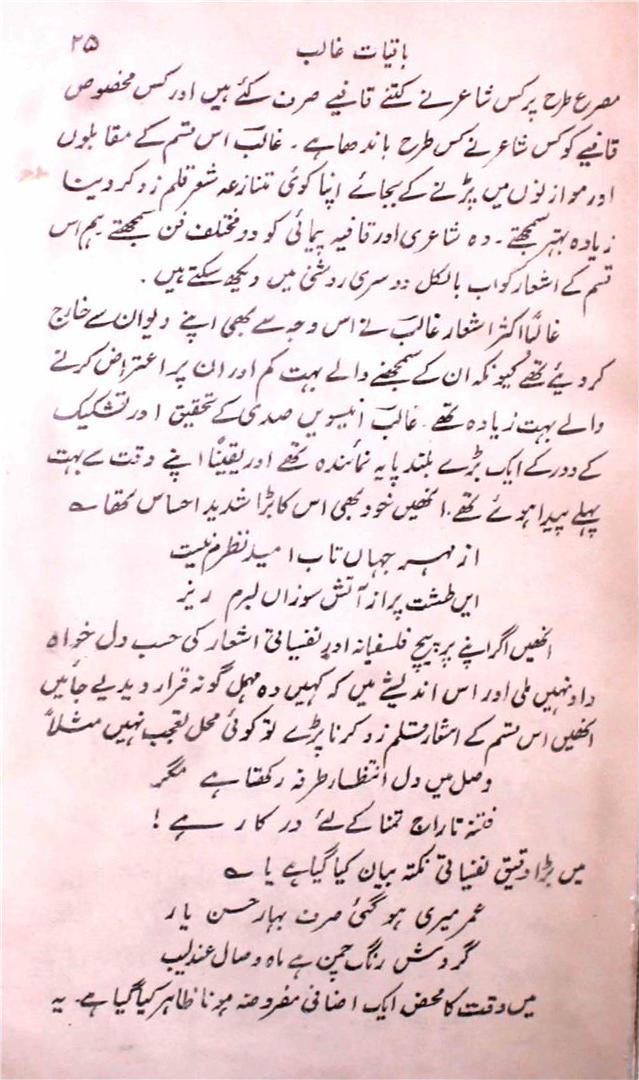 باقیات غالب ۲۵
مصرع طرح پر کس شاعر نے کتنے قافیے صرف کئے ہیں اور کس مخصوص
قافیے کو کس شاعر نے کس طرح باندھا ہے۔ غالبؔ اس قسم کے مقابلوں
اور موازنوں میں پڑنے کے بجائے اپنا کوئی متنازعہ شعر قلم زد کر دینا
زیادہ بہتر سمجھتے۔ وہ شاعری اور قافیہ پیمائی کو دو مختلف فن سمجھتے ہم اس
قسم کے اشعار کو اب بالکل دوسری روشنی میں دیکھ سکتے ہیں۔
غالباً اکثر اشعار غالبؔ نے اس وجہ سے بھی اپنے دیوان سے خارج
کر دیئے تھے کیونکہ ان کے سمجھنے والے بہت کم اور ان پر اعتراض کرنے
والے بہت زیادہ تھے۔ غالبؔ انیسویں صدی کے تحقیق اور تشکیک
کے دور کے ایک بڑے بلند پایہ نمائندہ تھے اور یقیناً اپنے وقت سے بہت
پہلے پیدا ہوئے تھے۔ انھیں خود بھی اس کا بڑا شدید احساس تھا ؎
از مہر جہاں تاب امید نظرم نیست
ایں طشت پر از آتش سوزاں بسرم ریز
انھیں اگر اپنے پر پیچ فلسفیانہ اور نفسیاتی اشعار کی حسب دل خواہ
داد نہیں ملی اور اس اندیشے میں کہ کہیں وہ مہمل گو نہ قرار دیدیے جائیں
انھیں اس قسم کے اشعار قلم زد کرنا پڑے تو کوئی محل تعجب نہیں مثلاً
وصل میں دل انتظار طرفہ رکھتا ہے مگر
فتنۂ تاراج تمنا کے لئے درکار ہے!
میں بڑا دقیق نفسیاتی نکتہ بیان کیا گیا ہے یا ؎
عمر میری ہو گئی صرف بہار حسن یار
گردش رنگ چمن ہے ماہ وصال عندلیب
میں وقت کا محض ایک اضافی مفروضہ ہونا ظاہر کیا گیا ہے۔ یہ